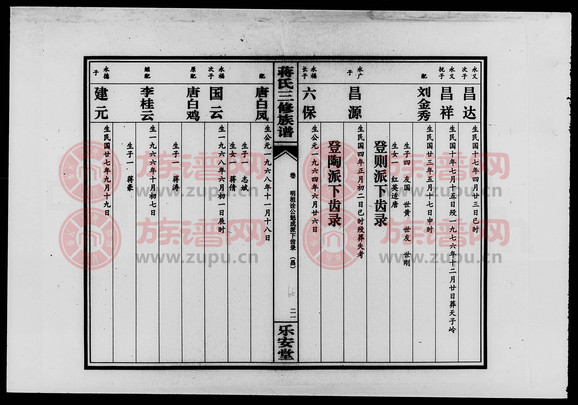 永义 次子 昌达 生民国十七年四月廿三日巳时
永义 抚子 昌祥 生民国十年七月十五日殁一九七六年十二月廿日葬天子岭
配 刘金秀 生民国廿三年五月十七日申时
生子四 友国 世黄 世友 世刚
生女一 红英适唐
登则派下齿录
永广 子 昌源 生民国四年正月初二日巳时殁葬失考
登陶派下齿录
永福 长子 六保 生公元一九六四年六月廿六日
蒋氏三修族谱
卷
明祖诠公魁成派下齿录(昌)
二一
乐安堂
配 唐白凤 生公元一九六八年十一月十八日
生子一 志斌
生女一 蒋倩
永福 次子 国云 生一九六八年六月初一日辰时
原配 唐白鸡
生子一 蒋涛
继配 李桂云 生一九六六年十月初七日
生子一 蒋豪
永德 子 建元 生民国廿七年九月十九日
族谱网
www.zupu.cn
族谱网
www.zupu.cn
族谱网
www.zupu.cn
族谱网
www.zupu.cn